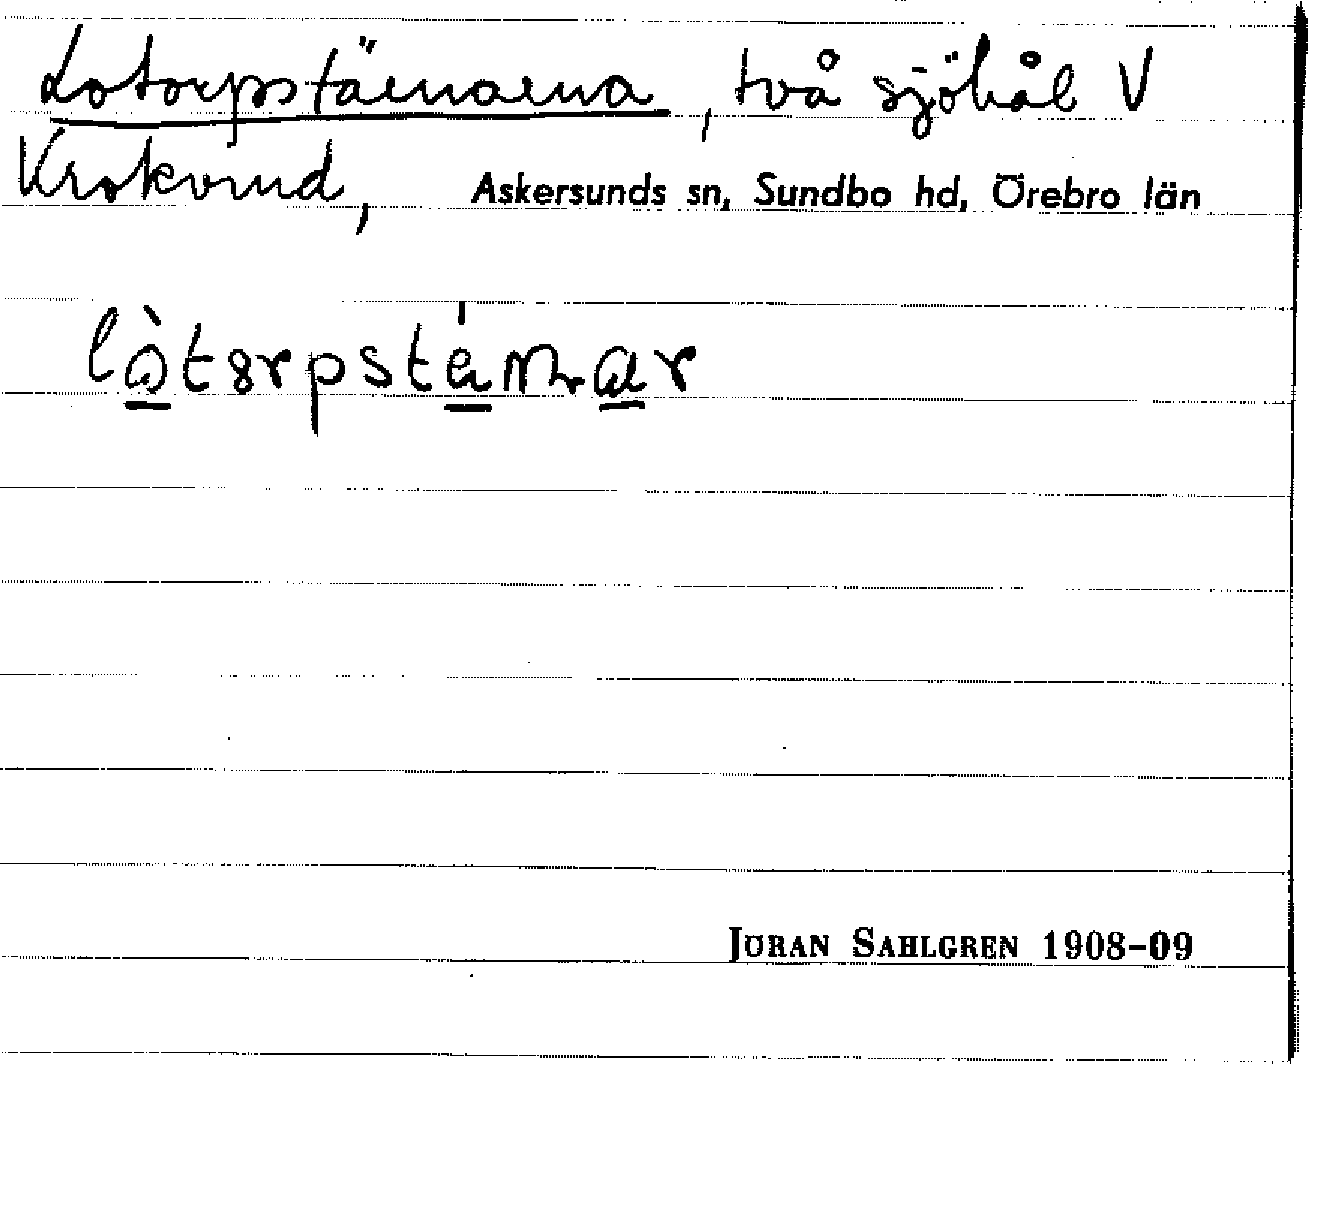 Lotorpstärnarna, två sjöhål V
Krokvrud, Askersunds sn, Sundbo hd, Örebro län
JÖRAN SAHLGREN 1908-09